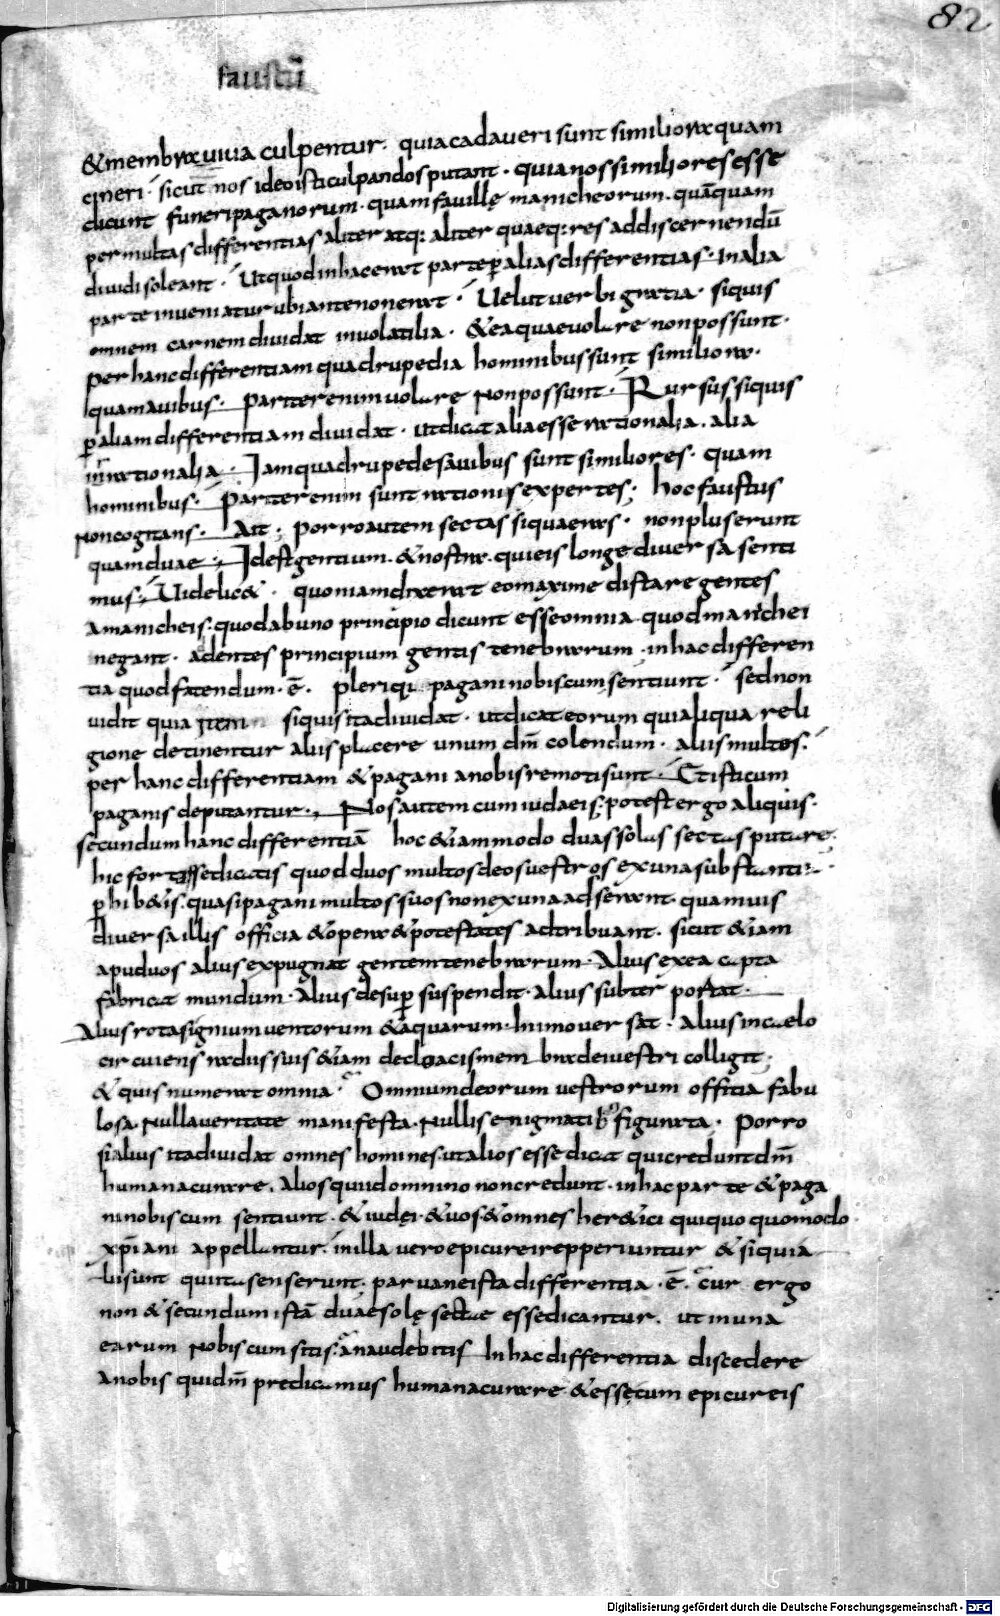 82
faustū
& membra uiua culpentur. quia cadaueri sunt similiora quam
cineri. sicut nos ideo isti culpandos putant. quia nos similiores esse
dicunt funeri paganorum. quam fauillę manicheorum. quāquam
per multas differentias aliter atq; aliter quaeq; res ad discernendū
diuidi soleant. Ut quod in hac erat parte p alias differentias. In alia
parte inueniatur ubi ante non erat. Uelut uerbi gratia. siquis
omnem carnem diuidat in uolatilia. & ea quae uolare non possunt.
per hanc differentiam quadrupedia hominibus sunt similiora.
quam auibus. Pariter enim uolare non possunt. Rursus siquis
p aliam differentiam diuidat. ut dicat alia esse rationalia. alia
inrationalia. Iam quadrupedes auibus sunt similiores. quam
hominibus. Pariter enim sunt rationis expertes; hoc faustus
non cogitans. Ait; porro autem sectas siquaeras. non plus erunt
quam duae; Idest gentium. & nostra. qui eis longe diuersa senti
mus; Uidelic&. quoniam dixerat eo maxime distare gentes
a manicheis. quod ab uno principio dicunt esse omnia quod manichei
negant. addentes principium gentis tenebrarum. in hac differen
tia quod fatendum. ē. pleriq; pagani nobiscum sentiunt. sed non
uidit quia item siquis ita diuidat. ut dicat eorum qui aliqua reli
gione detinentur aliis placere unum dm̄ colendum. aliis multos.
per hanc differentiam & pagani a nobis remoti sunt. & isti cum
paganis deputantur. Nos autem cum iudaeis; potest ergo aliquis.
secundum hanc differentiā hoc & iam modo duas solas sectas putare.
hic fortasse dicatis quod duos multos deos uestros ex una substantia
p hib&is. quasi pagani multos suos non ex una adserant. quamuis
diuersa illis officia & opera & potestates adtribuant. sicut & iam
apud uos alius expugnat gentem tenebrarum. Alius ex ea capta
fabricat mundum. Alius desup suspendit. Alius subter portat.
Alius rotas ignium uentorum & aquarum. In imo uersat. Alius in caelo
circuiens radiis suis & iam de cloacis membra dei uestri colligit.
& quis numerat omnia. Omnium deorum uestrorum officia fabu
losa. Nulla ueritate manifesta. Nullis enigmatib; figurata. Porro
si alius ita diuidat omnes homines. ut alios esse dicat qui credunt dm̄
humana curare. Alios qui id omnino non credunt. in hac parte & paga
ni nobiscum sentiunt. & iudęi. & uos & omnes her&ici qui quo quo modo
xp̄iani appellantur. in illa uero epicurei repperiuntur & siqui a
lii sunt qui ita senserunt. parua ne ista differentia. ē. cur ergo
non & secundum istā duae solę sectae esse dicantur. ut in una
earum nobiscum sitis. an audebitis In hac differentia discedere
a nobis qui dm̄ predicamus humana curare & esse cum epicureis
Digitalisierung gefördert durch die Deutsche Forschungsgemeinschaft - DFG